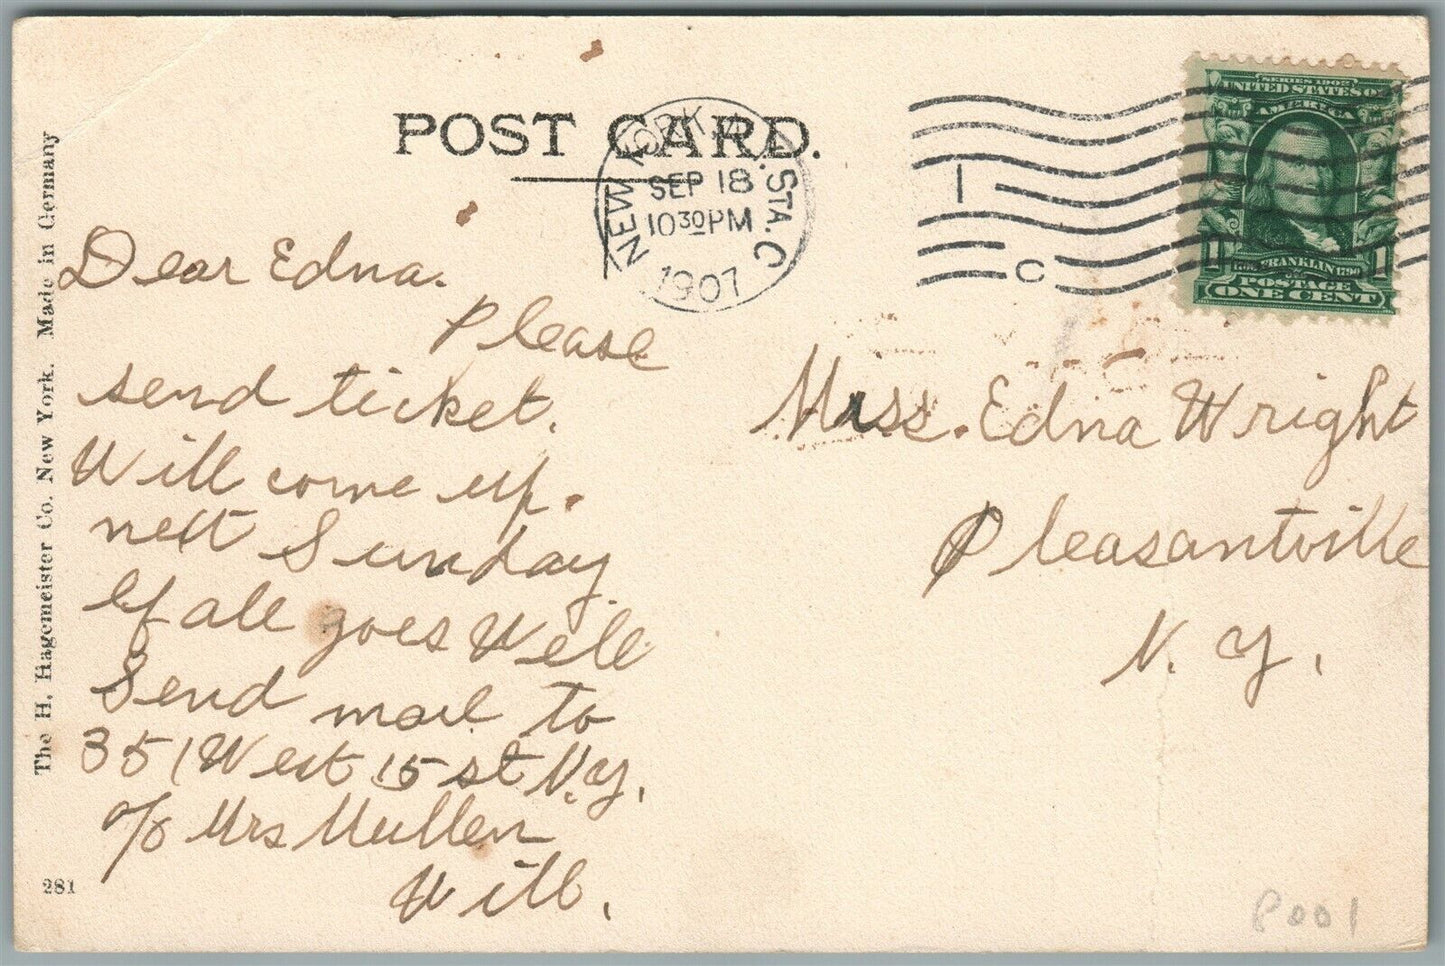 POST CARD.
NEW YORK, N.Y. STA. C
SEP 18
10 30 PM
1907
1
C
SERIES 1902
UNITED STATES OF
AMERICA
1706 FRANKLIN 1790
POSTAGE
1 1
ONE CENT
The H. Hagemeister Co. New York. Made in Germany
Dear Edna.
Please
send ticket.
Will come up.
next Sunday.
If all goes Well
Send mail to
351 West 15 st N.Y.
c/o Mrs Mullen
Will.
Miss. Edna Wright
Pleasantville
N. Y.
281
P001